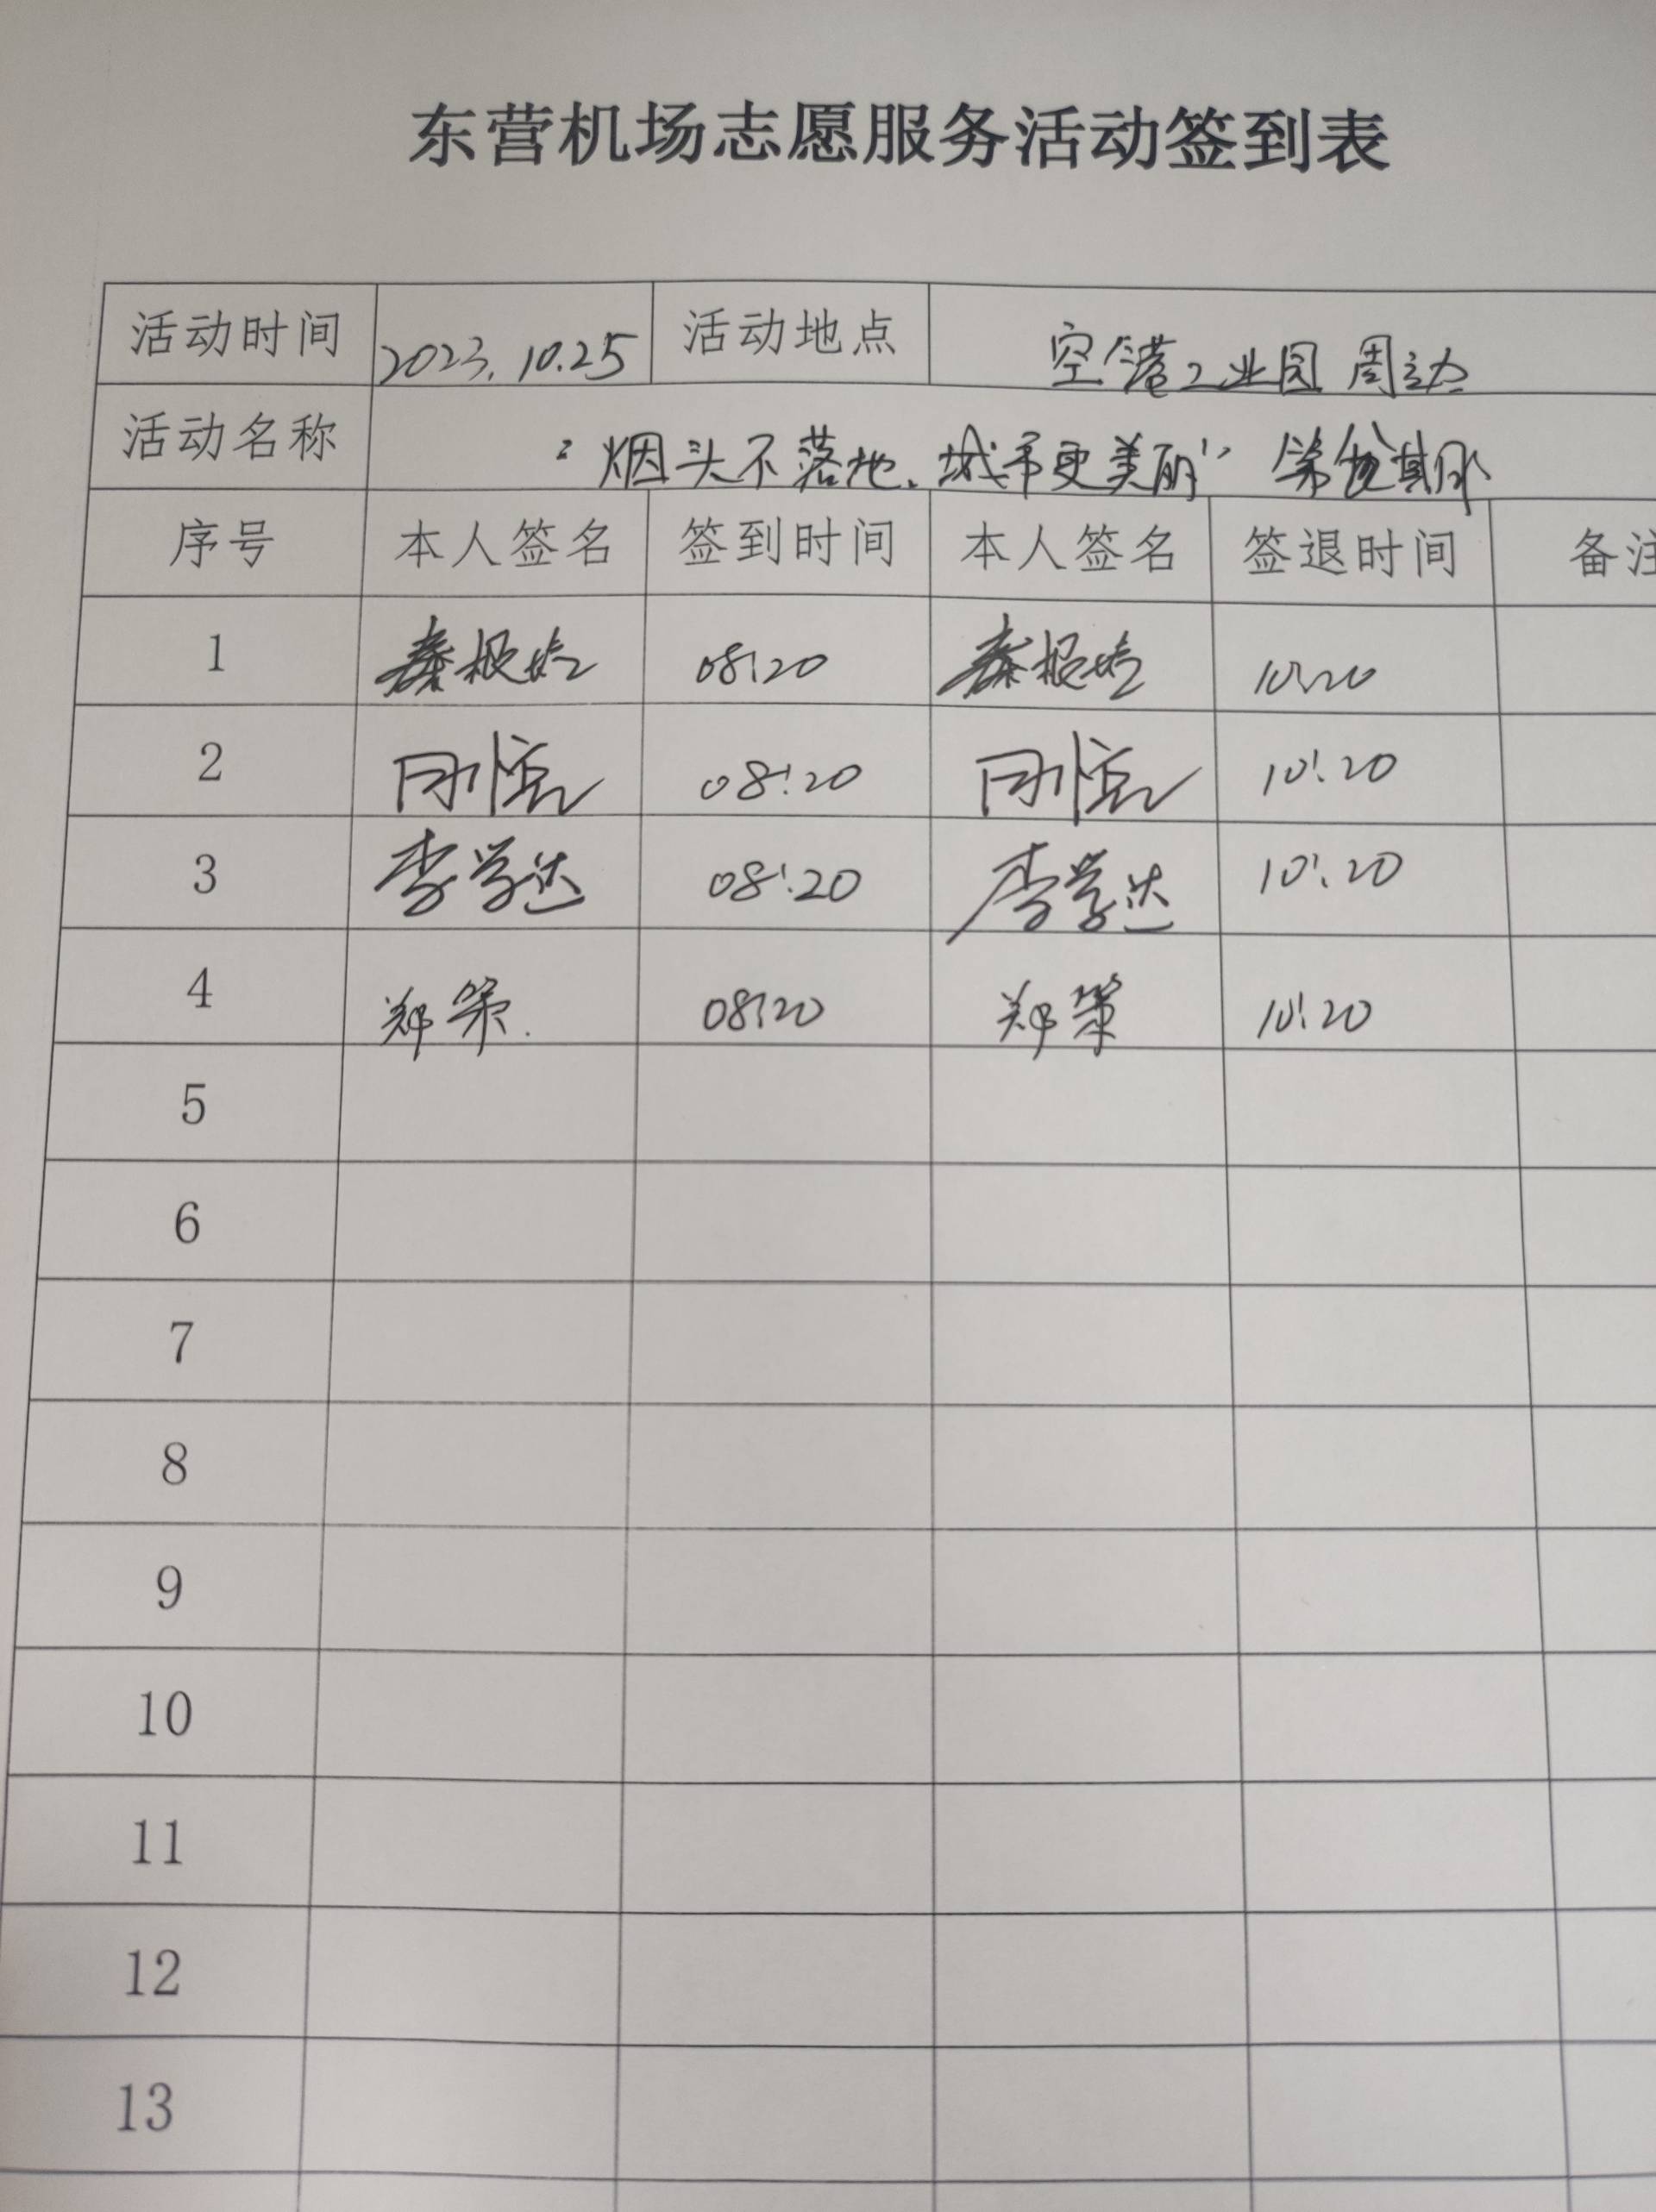 东营机场志愿服务活动签到表
活动时间 2023.10.25 活动地点 空港工业园周边
活动名称 "烟头不落地,城市更美丽" 第 期
序号 本人签名 签到时间 本人签名 签退时间 备注
1 秦 08:20 秦 10:20
2 08:20 10:20
3 李学达 08:20 李学达 10:20
4 郑策 08:20 郑策 10:20
5
6
7
8
9
10
11
12
13